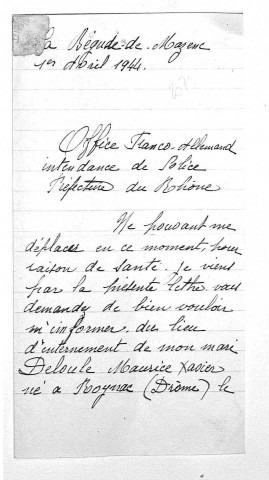 La Bégude-de-Mazenc
1er Avril 1944.
Office Franco-Allemand
intendance de Police
Préfecture du Rhône
Ne pouvant me
déplacer en ce moment, pour
raison de santé. Je viens
par la présente lettre vous
demander de bien vouloir
m'informer du lieu
d'internement de mon mari
Deloule Maurice Xavier
né a Roynac (Drôme) le